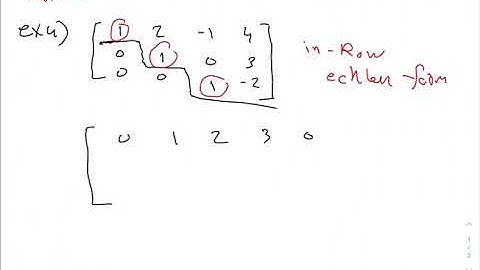 ex4) [ 1 2 -1 4
0 1 0 3
0 0 1 -2 ]
in-Row
echlen-form
[ 0 1 2 3 0